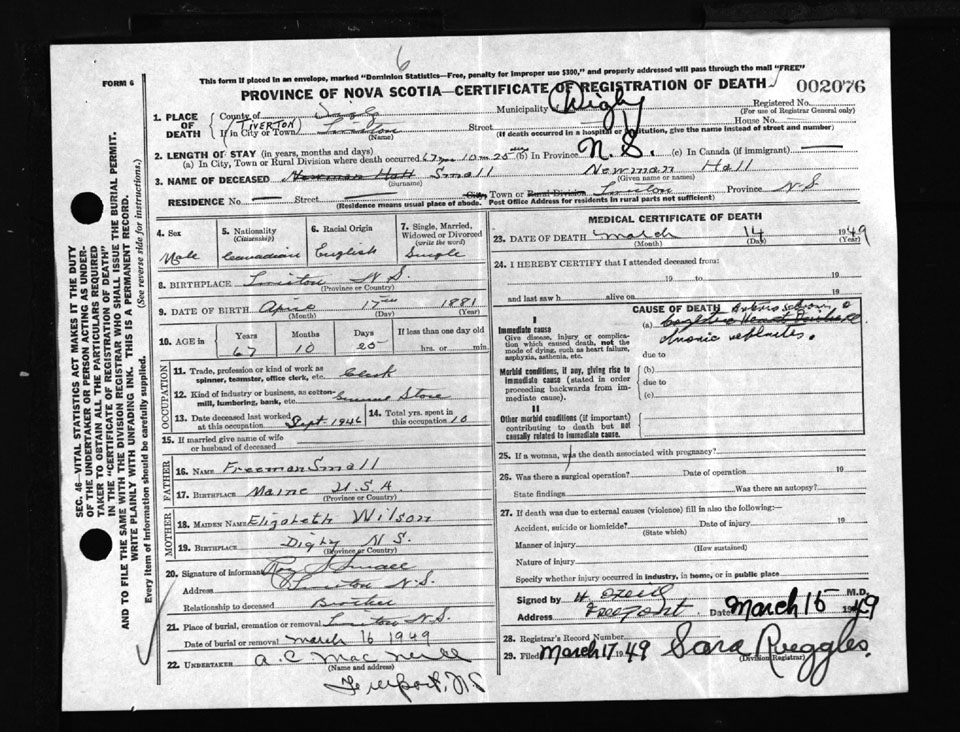 6
This form if placed in an envelope, marked "Dominion Statistics—Free, penalty for improper use $300," and properly addressed will pass through the mail "FREE"
FORM 6
PROVINCE OF NOVA SCOTIA—CERTIFICATE OF REGISTRATION OF DEATH
002076
SEC. 46—VITAL STATISTICS ACT MAKES IT THE DUTY
OF THE UNDERTAKER OR PERSON ACTING AS UNDER-
TAKER TO OBTAIN ALL THE PARTICULARS REQUIRED
IN THE "CERTIFICATE OF REGISTRATION OF DEATH"
AND TO FILE THE SAME WITH THE DIVISION REGISTRAR WHO SHALL ISSUE THE BURIAL PERMIT.
WRITE PLAINLY WITH UNFADING INK. THIS IS A PERMANENT RECORD.
Every item of Information should be carefully supplied. (See reverse side for instructions.)
1. PLACE OF DEATH
County of Digby Municipality of Digby Registered No.
(For use of Registrar General only)
(TIVERTON)
If in City or Town Tiverton Street House No. —
(Name) (If death occurred in a hospital or institution, give the name instead of street and number)
2. LENGTH OF STAY (in years, months and days)
(a) In City, Town or Rural Division where death occurred 67 yrs 10 m 25 days (b) in Province N.S. (c) In Canada (if immigrant) —
3. NAME OF DECEASED Newman Hall Small Newman Hall
(Surname) (Given name or names)
RESIDENCE No. — Street City, Town or Rural Division Tiverton Province N.S.
(Residence means usual place of abode. Post Office Address for residents in rural parts not sufficient)
4. Sex
Male
5. Nationality
(Citizenship)
Canadian
6. Racial Origin
English
7. Single, Married, Widowed or Divorced
(write the word)
Single
8. BIRTHPLACE Tiverton N.S.
(Province or Country)
9. DATE OF BIRTH April 17th 1881
(Month) (Day) (Year)
10. AGE in Years Months Days If less than one day old
67 10 25 hrs. or min.
OCCUPATION
11. Trade, profession or kind of work as
spinner, teamster, office clerk, etc. Clerk
12. Kind of industry or business, as cotton-
mill, lumbering, bank, etc. General Store
13. Date deceased last worked
at this occupation Sept. 1946
14. Total yrs. spent in
this occupation 10
15. If married give name of wife
or husband of deceased
FATHER
16. NAME Freeman Small
17. BIRTHPLACE Maine U.S.A
(Province or Country)
MOTHER
18. MAIDEN NAME Elizabeth Wilson
19. BIRTHPLACE Digby N.S.
(Province or Country)
20. Signature of informant Small
Address Tiverton N.S.
Relationship to deceased Brother
21. Place of burial, cremation or removal Tiverton N.S.
Date of burial or removal March 16 1949
22. UNDERTAKER A.C. MacNeill
(Name and address)
Freeport, N.S
MEDICAL CERTIFICATE OF DEATH
23. DATE OF DEATH March 14 1949
(Month) (Day) (Year)
24. I HEREBY CERTIFY that I attended deceased from:
19 to 19
and last saw h alive on 19
CAUSE OF DEATH
I
Immediate cause
Give disease, injury or complica-
tion which caused death, not the
mode of dying, such as heart failure,
asphyxia, asthenia, etc.
(a)
chronic
due to
Morbid conditions, if any, giving rise to
immediate cause (stated in order
proceeding backwards from im-
mediate cause).
(b)
due to
(c)
II
Other morbid conditions (if important)
contributing to death but not
causally related to immediate cause.
25. If a woman, was the death associated with pregnancy?
26. Was there a surgical operation? Date of operation 19
State findings Was there an autopsy?
27. If death was due to external causes (violence) fill in also the following:—
Accident, suicide or homicide? Date of injury 19
(State which)
Manner of injury
(How sustained)
Nature of injury
Specify whether injury occurred in industry, in home, or in public place
Signed by M.D.
Address Freeport Date March 15 1949
28. Registrar's Record Number
29. Filed March 17 1949 Sara Ruggles
(Division Registrar)